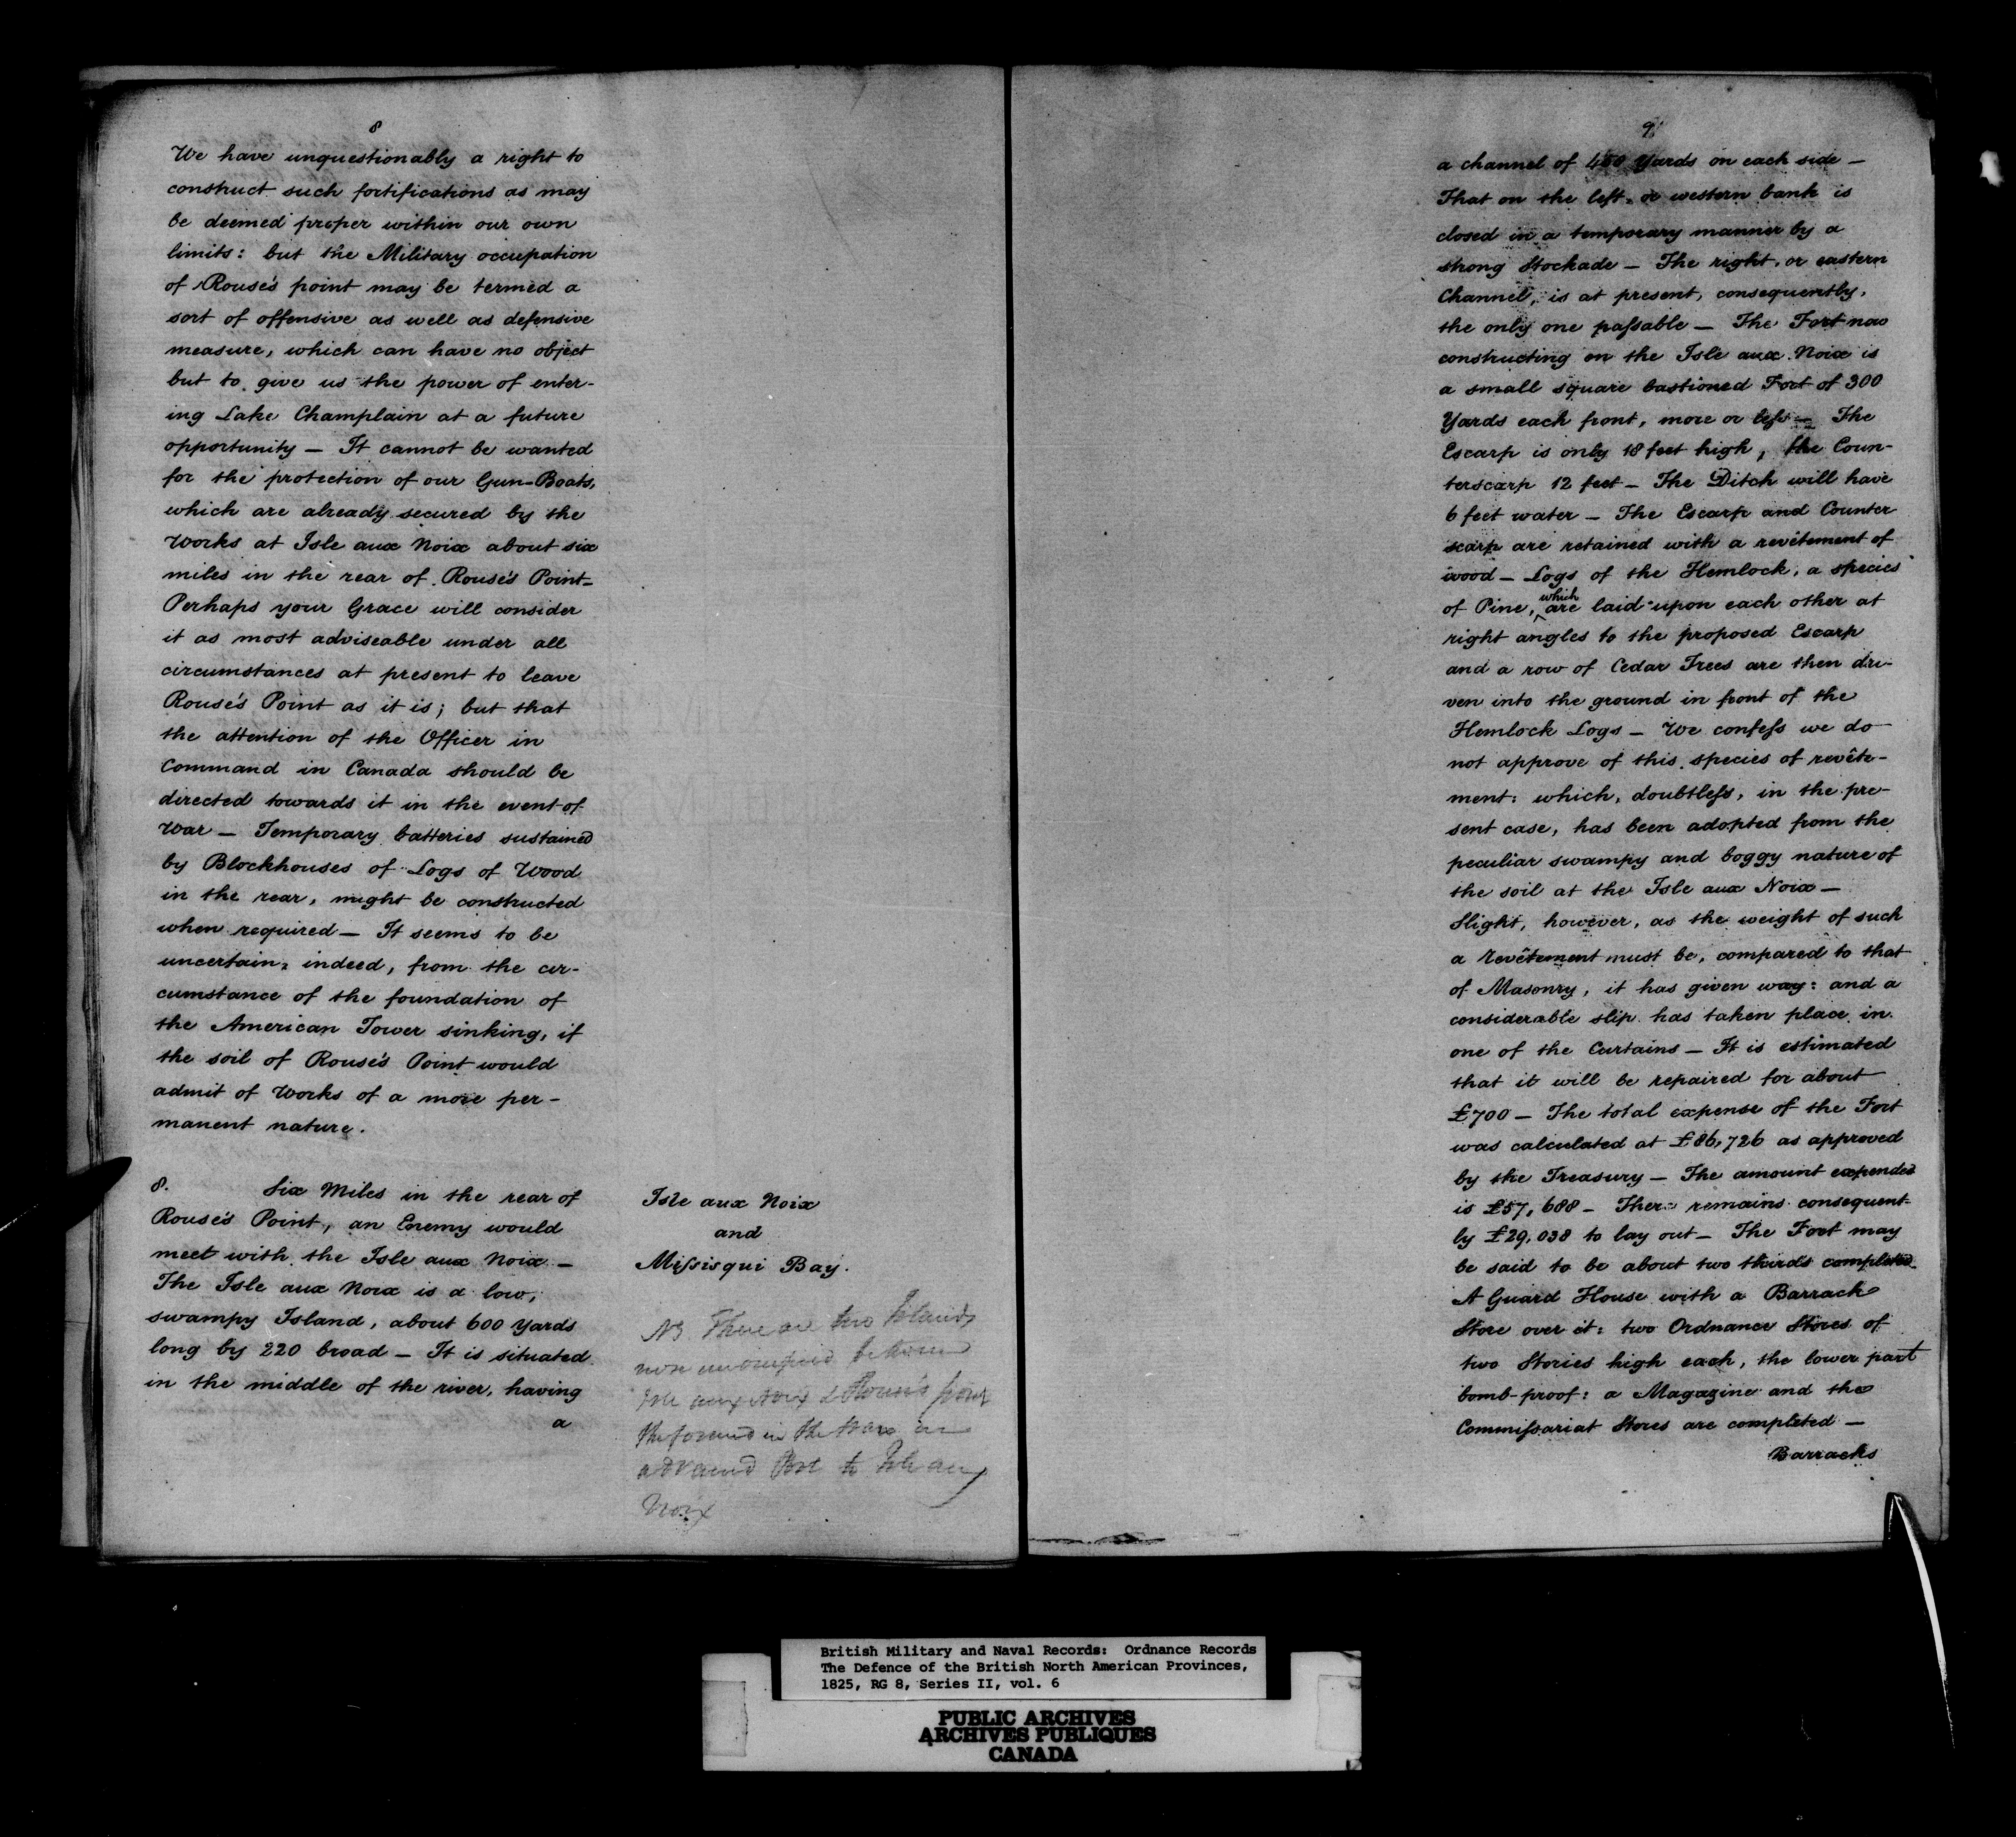 8
We have unquestionably a right to
construct such fortifications as may
be deemed proper within our own
limits: but the Military occupation
of Rouse's point may be termed a
sort of offensive as well as defensive
measure, which can have no object
but to give us the power of enter-
ing Lake Champlain at a future
opportunity — It cannot be wanted
for the protection of our Gun-Boats,
which are already secured by the
Works at Isle aux Noix about six
miles in the rear of Rouse's Point —
Perhaps your Grace will consider
it as most adviseable under all
circumstances at present to leave
Rouse's Point as it is; but that
the attention of the Officer in
Command in Canada should be
directed towards it in the event of
War — Temporary batteries sustained
by Blockhouses of Logs of Wood
in the rear, might be constructed
when required — It seems to be
uncertain, indeed, from the cir-
cumstance of the foundation of
the American Tower sinking, if
the soil of Rouse's Point would
admit of Works of a more per-
manent nature.
8. Six Miles in the rear of
Rouse's Point, an Enemy would
meet with the Isle aux Noix —
The Isle aux Noix is a low,
swampy Island, about 600 Yards
long by 220 broad — It is situated
in the middle of the river, having
a
Isle aux Noix
and
Missisqui Bay.
NB. There are two Islands
now unoccupied between
Isle aux Noix & Rouse's point
the in the war an
advanced Post to Isle aux
Noix
9
a channel of Yards on each side —
That on the left, or western bank is
closed in a temporary manner by a
strong Stockade — The right, or eastern
Channel, is at present, consequently,
the only one passable — The Fort now
constructing on the Isle aux Noix is
a small square bastioned Fort of 300
Yards each front, more or less — The
Escarp is only 18 feet high, the Coun-
terscarp 12 feet — The Ditch will have
6 feet water — The Escarp and Counter
scarp are retained with a revêtement of
wood — Logs of the Hemlock, a species
of Pine, which are laid upon each other at
right angles to the proposed Escarp
and a row of Cedar Trees are then dri-
ven into the ground in front of the
Hemlock Logs — We confess we do
not approve of this species of revête-
ment: which, doubtless, in the pre-
sent case, has been adopted from the
peculiar swampy and boggy nature of
the soil at the Isle aux Noix —
Slight, however, as the weight of such
a revêtement must be, compared to that
of Masonry, it has given way: and a
considerable slip has taken place in
one of the Curtains — It is estimated
that it will be repaired for about
£700 — The total expense of the Fort
was calculated at £86,726 as approved
by the Treasury — The amount expended
is £57,688 — There remains consequent-
ly £29,038 to lay out — The Fort may
be said to be about two thirds completed
A Guard House with a Barrack
Store over it: two Ordnance Stores of
two Stories high each, the lower part
bomb-proof: a Magazine and the
Commissariat Stores are completed —
Barracks
British Military and Naval Records: Ordnance Records
The Defence of the British North American Provinces,
1825, RG 8, Series II, vol. 6
PUBLIC ARCHIVES
ARCHIVES PUBLIQUES
CANADA